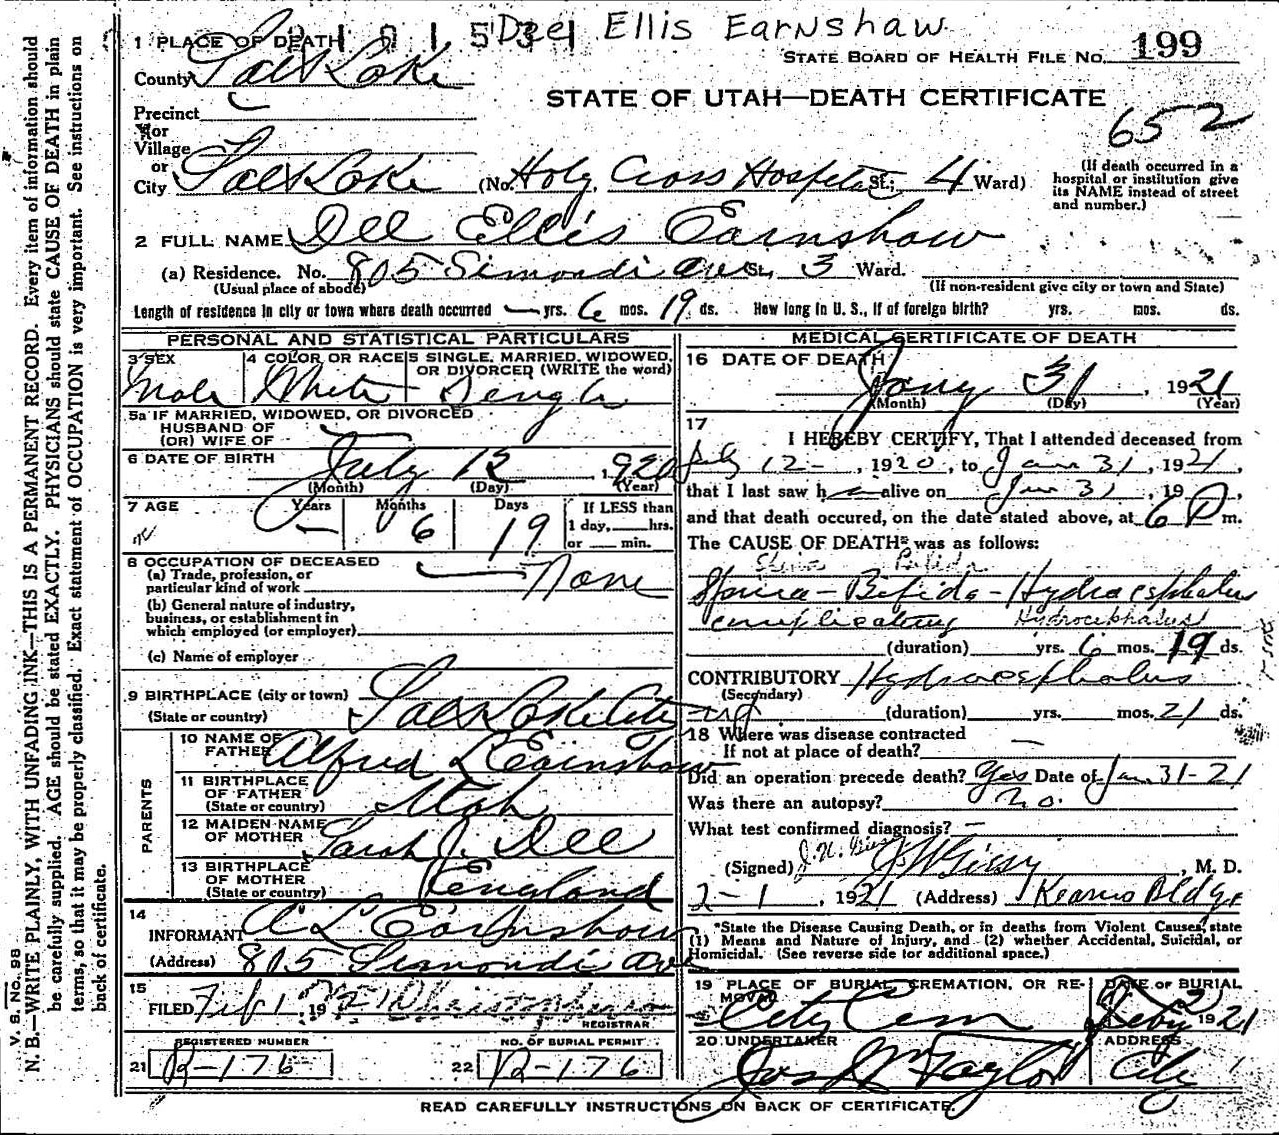 Dee Ellis Earnshaw
1 PLACE OF DEATH
STATE BOARD OF HEALTH FILE NO. 199
County Salt Lake
STATE OF UTAH—DEATH CERTIFICATE
652
Precinct
or
Village
or
City Salt Lake (No. Holy Cross Hospital St.; 4 Ward)
(If death occurred in a
hospital or institution give
its NAME instead of street
and number.)
2 FULL NAME Dee Ellis Earnshaw
(a) Residence. No. 805 Simondi Ave St. 3 Ward.
(Usual place of abode)
(If non-resident give city or town and State)
Length of residence in city or town where death occurred — yrs. 6 mos. 19 ds. How long in U. S., if of foreign birth? yrs. mos. ds.
PERSONAL AND STATISTICAL PARTICULARS
3 SEX
Male
4 COLOR OR RACE
White
5 SINGLE, MARRIED, WIDOWED,
OR DIVORCED (WRITE the word)
Single
5a IF MARRIED, WIDOWED, OR DIVORCED
HUSBAND OF
(OR) WIFE OF
6 DATE OF BIRTH
July 12, 1920
(Month) (Day) (Year)
7 AGE Years Months Days
— 6 19
If LESS than
1 day, hrs.
or min.
8 OCCUPATION OF DECEASED
(a) Trade, profession, or
particular kind of work None
(b) General nature of industry,
business, or establishment in
which employed (or employer)
(c) Name of employer
9 BIRTHPLACE (city or town)
(State or country) Salt Lake City
PARENTS
10 NAME OF
FATHER Alfred L Earnshaw
11 BIRTHPLACE
OF FATHER
(State or country) Utah
12 MAIDEN NAME
OF MOTHER Sarah J. Dee
13 BIRTHPLACE
OF MOTHER
(State or country) England
14
INFORMANT A L Earnshaw
(Address) 805 Simondi Ave
15
FILED Feb 1, 1921
REGISTRAR
REGISTERED NUMBER
21 R-176
NO. OF BURIAL PERMIT
22 R-176
MEDICAL CERTIFICATE OF DEATH
16 DATE OF DEATH
Jany 31, 1921
(Month) (Day) (Year)
17
I HEREBY CERTIFY, That I attended deceased from
July 12-, 1920, to Jan 31, 1921,
that I last saw h alive on Jan 31, 19 ,
and that death occured, on the date stated above, at 6 P m.
The CAUSE OF DEATH* was as follows:
Spina Bifida
Spina-Bifida-Hydrocephalus
complicating Hydrocephalus
(duration) yrs. 6 mos. 19 ds.
CONTRIBUTORY Hydrocephalus
(Secondary)
(duration) yrs. mos. 21 ds.
18 Where was disease contracted
If not at place of death? —
Did an operation precede death? Yes Date of Jan. 31-21
Was there an autopsy? No.
What test confirmed diagnosis? —
(Signed) , M. D.
2-1, 1921 (Address) Kearns Bldg.
*State the Disease Causing Death, or in deaths from Violent Causes, state
(1) Means and Nature of Injury, and (2) whether Accidental, Suicidal, or
Homicidal. (See reverse side for additional space.)
19 PLACE OF BURIAL, CREMATION, OR RE-
MOVAL
City Cem
DATE OF BURIAL
Feby 2, 1921
20 UNDERTAKER
Jos Wm Taylor
ADDRESS
City
READ CAREFULLY INSTRUCTIONS ON BACK OF CERTIFICATE.
V. S. No. 98
N. B.—WRITE PLAINLY, WITH UNFADING INK—THIS IS A PERMANENT RECORD. Every item of information should
be carefully supplied. AGE should be stated EXACTLY. PHYSICIANS should state CAUSE OF DEATH in plain
terms, so that it may be properly classified. Exact statement of OCCUPATION is very important. See instructions on
back of certificate.